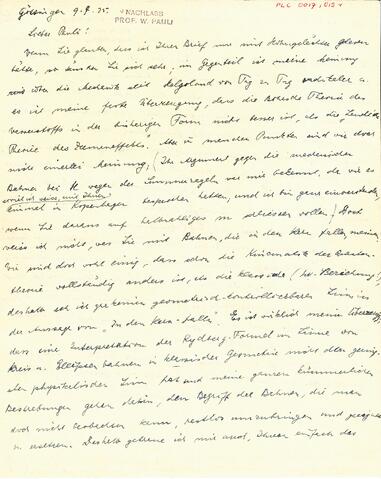 PLC 0017, 015 r
NACHLASS
PROF. W. PAULI
Göttingen 9. 7. 25.
Lieber Pauli!
Wenn Sie glauben, dass ich Ihren Brief nur mit Hohngelächter gelesen
hätte, so irren Sie sich sehr; im Gegenteil ist meine Meinung
über die Mechanik seit Helgoland von Tag zu Tag radikaler u.
es ist meine feste Überzeugung, dass die Bohrsche Theorie des
Wasserstoffs in der bisherigen Form nicht besser ist, als die Landésche
Theorie des Zeemaneffekts. Aber in manchen Punkten sind wir doch
nicht einerlei Meinung; Ihr Argument gegen die mechanischen
Bahnen bei H wegen der Summenregeln war mir bekannt, da wir es
soviel ich weiss, mit Ihnen
einmal in Kopenhagen besprochen hatten, und ich bin ganz einverstanden
wenn Sie daraus auf zu schliessen wollen; Doch
weiss ich nicht, was Sie mit Bahnen, die in den Kern fallen, meinen.
Wir sind doch wohl einig, dass schon die Kinematik der Quanten-
theorie vollständig anders ist, als die klassische (hν-Beziehung),
deshalb seh ich gar keinen geometrisch-controllierbaren Sinn in
der Aussage von "In den Kern-Falln". Es ist wirklich meine Überzeugung
dass eine Interpretation der Rydberg-Formel im Sinne von
Kreis u. Ellipsenbahnen in klassischer Geometrie nicht den gering-
sten physikalischen Sinn hat und meine ganzen kümmerlichen
Bestrebungen gehen dahin, den Begriff der Bahnen, die man
doch nicht beobachten kann, restlos umzubringen und geeignet
zu ersetzen. Deshalb getraue ich mir auch, Ihnen einfach das